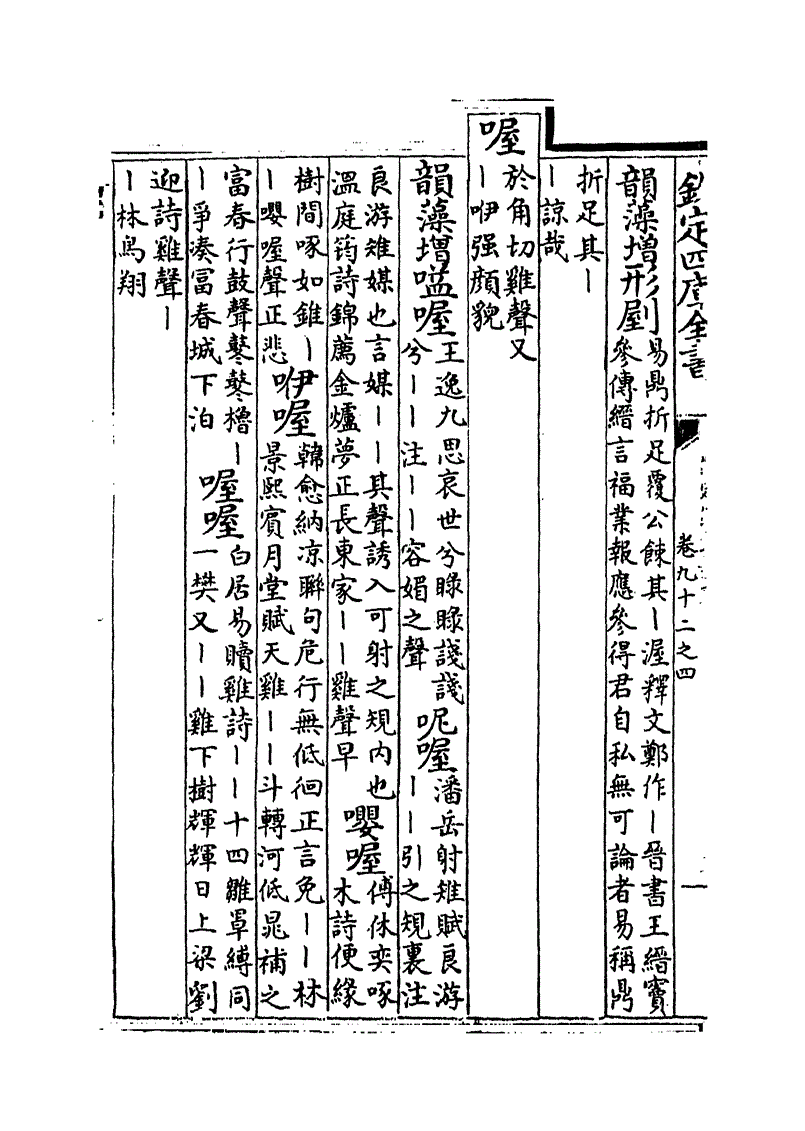 欽定四庫全書
卷九十二之四
韻藻增形剭
易鼎折足覆公餗其丨渥釋文鄭作丨晉書王縉竇
參傳縉言福業報應參得君自私無可論者易稱鼎
折足其丨
丨諒哉
喔
於角切雞聲又
丨咿强顔貌
韻藻增嗌喔
王逸九思哀世兮睩睩諓諓
兮丨丨注丨丨容媚之聲
呢喔
潘岳射雉賦良游
丨丨引之規裏注
良游雉媒也言媒丨丨其聲誘入可射之規内也
溫庭筠詩錦薦金爐夢正長東家丨丨雞聲早
嚶喔
傅休奕啄
木詩便緣
樹間啄如錐丨
丨嚶喔聲正悲
咿喔
韓愈納凉聯句危行無低徊正言免丨丨林
景熙賓月堂賦天雞丨丨斗轉河低晁補之
富春行鼓聲鼕鼕櫓丨
丨爭凑富春城下泊
喔喔
白居易贖雞詩丨丨十四雛罩縛同
一樊又丨丨雞下樹輝輝日上梁劉
迎詩雞聲丨
丨林鳥翔